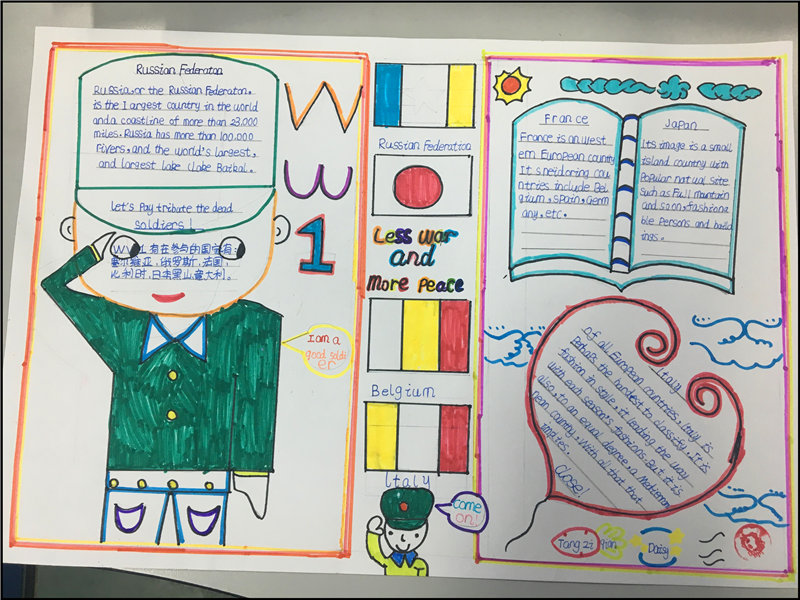 Russian Federaton
Russia, or the Russian Federaton,
is the largest country in the world
and a coastline of more than 23,000
miles. Russia has more than 100,000
rivers, and the world's largest,
and largest lake (Lake Baikal.
Let's Pay tribute the dead
soldiers!
WW1有在参与的国家有:
塞尔维亚,俄罗斯,法国,
比利时,日本黑山,意大利。
I am a
good soldi
er
W
W
1
Russian Federation
Less war
and
More Peace
Belgium
Italy
Come
on!
France
France is an west
ern European country
It s neidoring cou
ntries include Bel
gium, spain, Germ
any, etc.
Japan
Its image is a small
island country with
Popular natual site
such as Fuji mountain
and so on, fashiona
ble persons and build
ings.
Italy
Of all European countries, Italy is
Perhaps the hardest to classify. It is
fashion in style, it leading the way
with each season's fashions. But it is
also, to an equal degree, a Mediterran
pean country, with all that that
implies.
Close!
Tang zi qian
Daisy